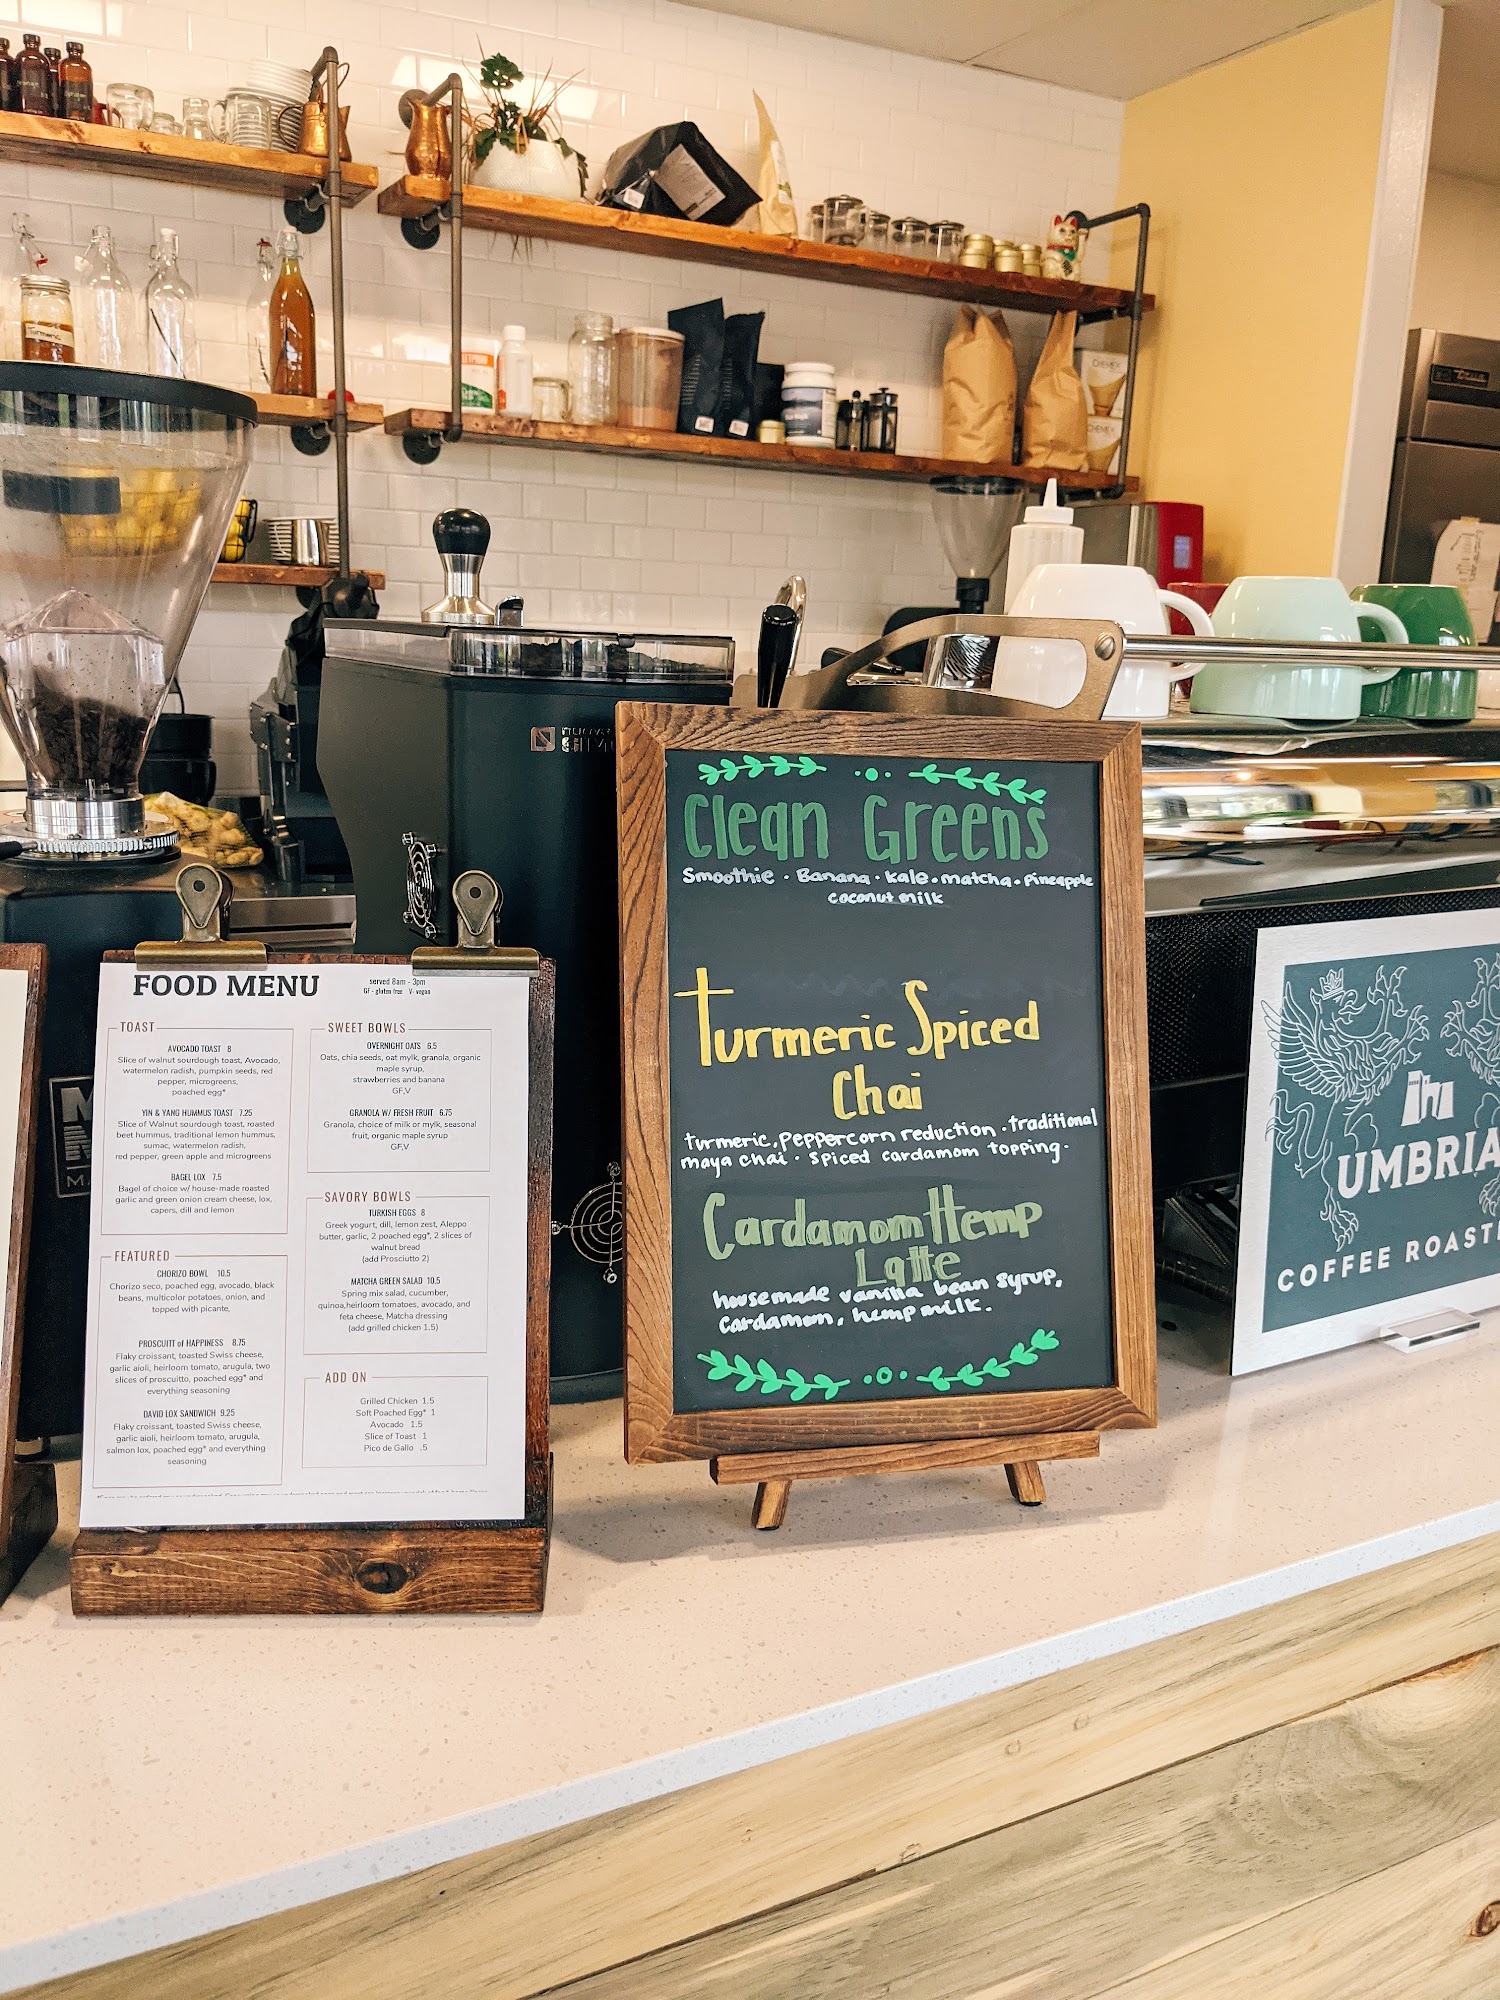 Turmeric
CHEMEX
CHEMEX
FOOD MENU
served 8am - 3pm
GF - gluten free V - vegan
TOAST
AVOCADO TOAST 8
Slice of walnut sourdough toast, Avocado,
watermelon radish, pumpkin seeds, red
pepper, microgreens,
poached egg*
YIN & YANG HUMMUS TOAST 7.25
Slice of Walnut sourdough toast, roasted
beet hummus, traditional lemon hummus,
sumac, watermelon radish,
red pepper, green apple and microgreens
BAGEL LOX 7.5
Bagel of choice w/ house-made roasted
garlic and green onion cream cheese, lox,
capers, dill and lemon
FEATURED
CHORIZO BOWL 10.5
Chorizo seco, poached egg, avocado, black
beans, multicolor potatoes, onion, and
topped with picante,
PROSCUITT of HAPPINESS 8.75
Flaky croissant, toasted Swiss cheese,
garlic aioli, heirloom tomato, arugula, two
slices of proscuitto, poached egg* and
everything seasoning
DAVID LOX SANDWICH 9.25
Flaky croissant, toasted Swiss cheese,
garlic aioli, heirloom tomato, arugula,
salmon lox, poached egg* and everything
seasoning
SWEET BOWLS
OVERNIGHT OATS 6.5
Oats, chia seeds, oat mylk, granola, organic
maple syrup,
strawberries and banana
GF,V
GRANOLA W/ FRESH FRUIT 6.75
Granola, choice of milk or mylk, seasonal
fruit, organic maple syrup
GF,V
SAVORY BOWLS
TURKISH EGGS 8
Greek yogurt, dill, lemon zest, Aleppo
butter, garlic, 2 poached egg*, 2 slices of
walnut bread
(add Prosciutto 2)
MATCHA GREEN SALAD 10.5
Spring mix salad, cucumber,
quinoa,heirloom tomatoes, avocado, and
feta cheese, Matcha dressing
(add grilled chicken 1.5)
ADD ON
Grilled Chicken 1.5
Soft Poached Egg* 1
Avocado 1.5
Slice of Toast 1
Pico de Gallo .5
Clean Greens
Smoothie · Banana · kale · matcha · Pineapple
coconut milk
Turmeric Spiced
Chai
turmeric, peppercorn reduction · traditional
maya chai · spiced cardamom topping ·
Cardamom Hemp
Latte
housemade vanilla bean syrup,
Cardamom, hemp milk.
UMBRIA
COFFEE ROAST